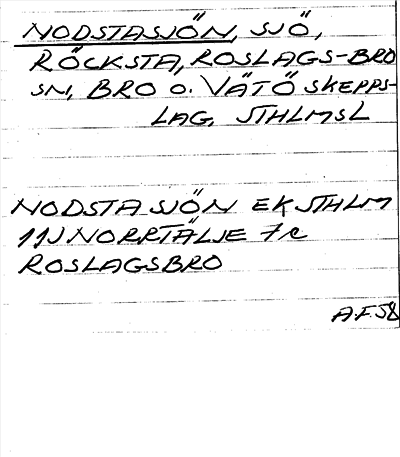 NODSTASJÖN, SJÖ,
RÖCKSTA, ROSLAGS-BRO
SN, BRO O. VÄTÖ SKEPPS-
LAG, STHLMSL
NODSTASJÖN EK STHLM
11J NORRTÄLJE 7c
ROSLAGSBRO
A.F.58